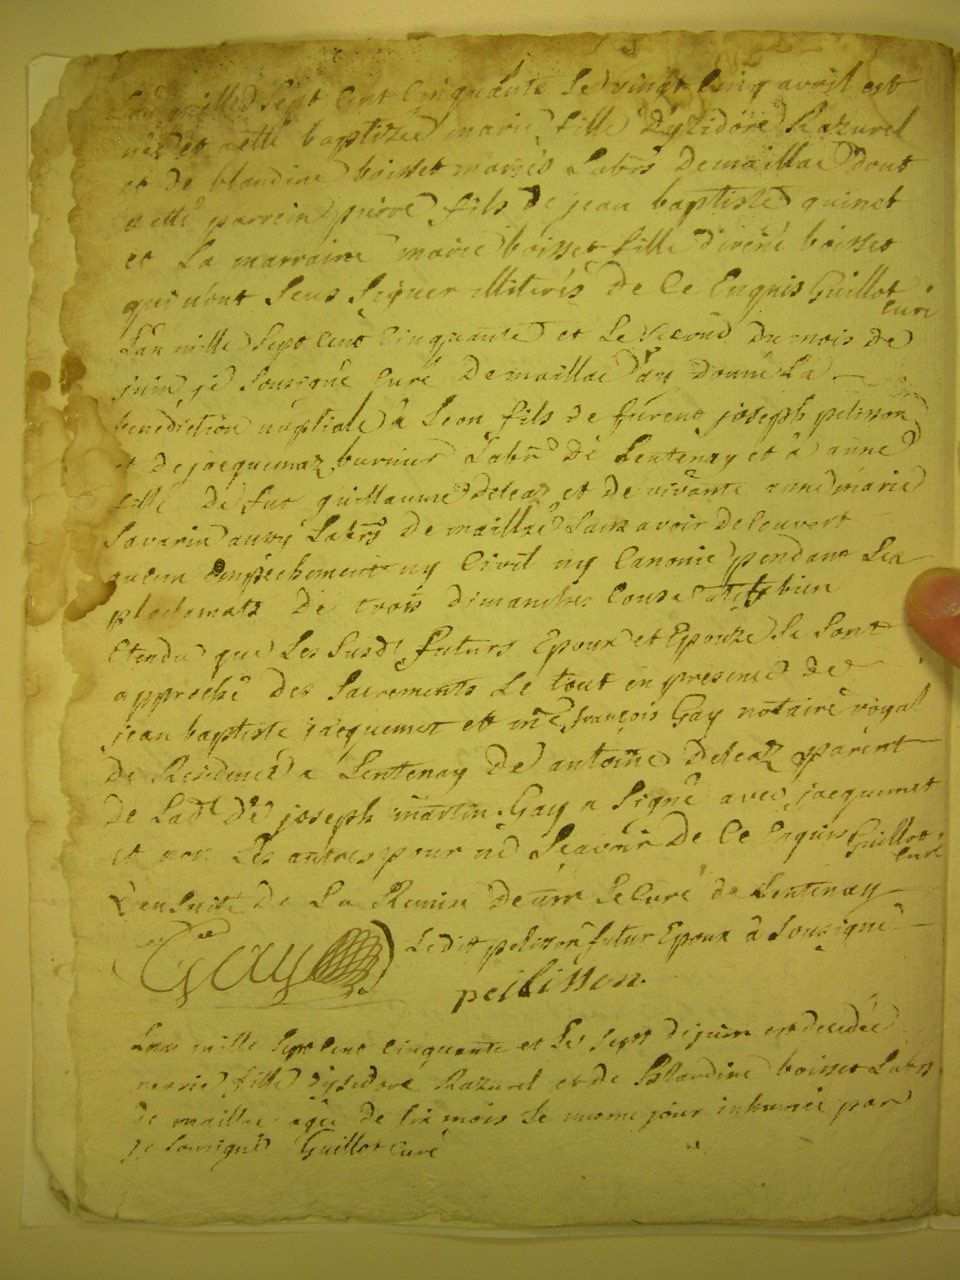 L'an mille Sept Cent Cinquante Le vingt Cinq avril est
née et a etté baptizée marie fille d'yzidore Razurel
et de blandine boisset mariés Labrs de maillac dont
a etté parrein pierre fils de jean baptiste quinet
et La marraine marie boisset fille d'irené boisset
qui n'ont Sçus Signer illiterés de Ce Enquis Guillot
curé
L'an mille Sept Cent Cinquante et Le Second du mois de
juin je Sousigné Curé de maillac ay donné La
benediction nuptiale à Leon fils de joseph pelisson
et de jacquemaz burnier Labr de Lentenay et à anne
fille de fut guillaume deleaz et de vivante anne marie
Savarin aussy Labrs de maillac Sans avoir decouvert
aucun Empechement ny Civil ny Canonic pendant Les
de trois dimanches bien
Etendu que Les Susds futurs Epoux et Epouze Se Sont
approché des Sacrements Le tout en presence de
jean baptiste jacquemet et me françois Gay notaire royal
de Residence a Lentenay de antoine deleaz parent
de Lade de joseph martin. Gay a Signé avec jacquemet
et non Les autres pour ne Sçavoir de Ce Enquis Guillot
curé
Ensuite de La Remise de mr Le Curé de Lentenay
Gay Ledit pelisson futur Epoux à Sousigné
pellisson.
L'an mille Sept Cent Cinquante et Le Sept de juin est decedée
marie fille d'ysidore Razurel et de Blandine boisset Labrs
de maillac agée de Six mois Le meme jour inhumée par
je Sousigné Guillot Curé